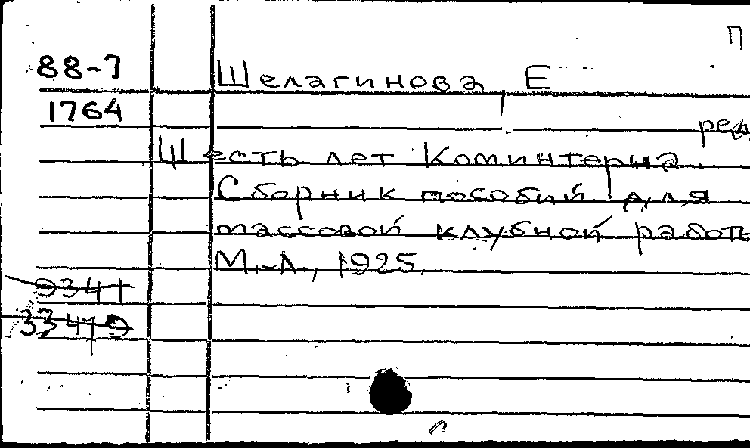 П
88-7 Шелагинова Е
1764
ред
Шесть лет Коминтерна.
Сборник пособий для
массовой клубной работы
М.-Л., 1925.
9341
33419